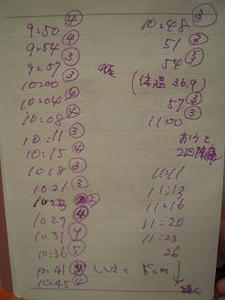 ④
9:50 ④
9:54 ③
9:57 ③
10:00 ④
10:04 ④
10:08 ③
10:11 ④
10:15 ③
10:18 ③
10:21 ③
10:2 ②
10:27 ④
10:31 ④
10:36 ⑤
10:41 ④ 5cm
10:45 ④
10:48 ③
51 ③
54 ③
(体温 36.9)
57 ③
11:00
2回陣痛
11:11
11:13
11:16
11:20
11:23
26